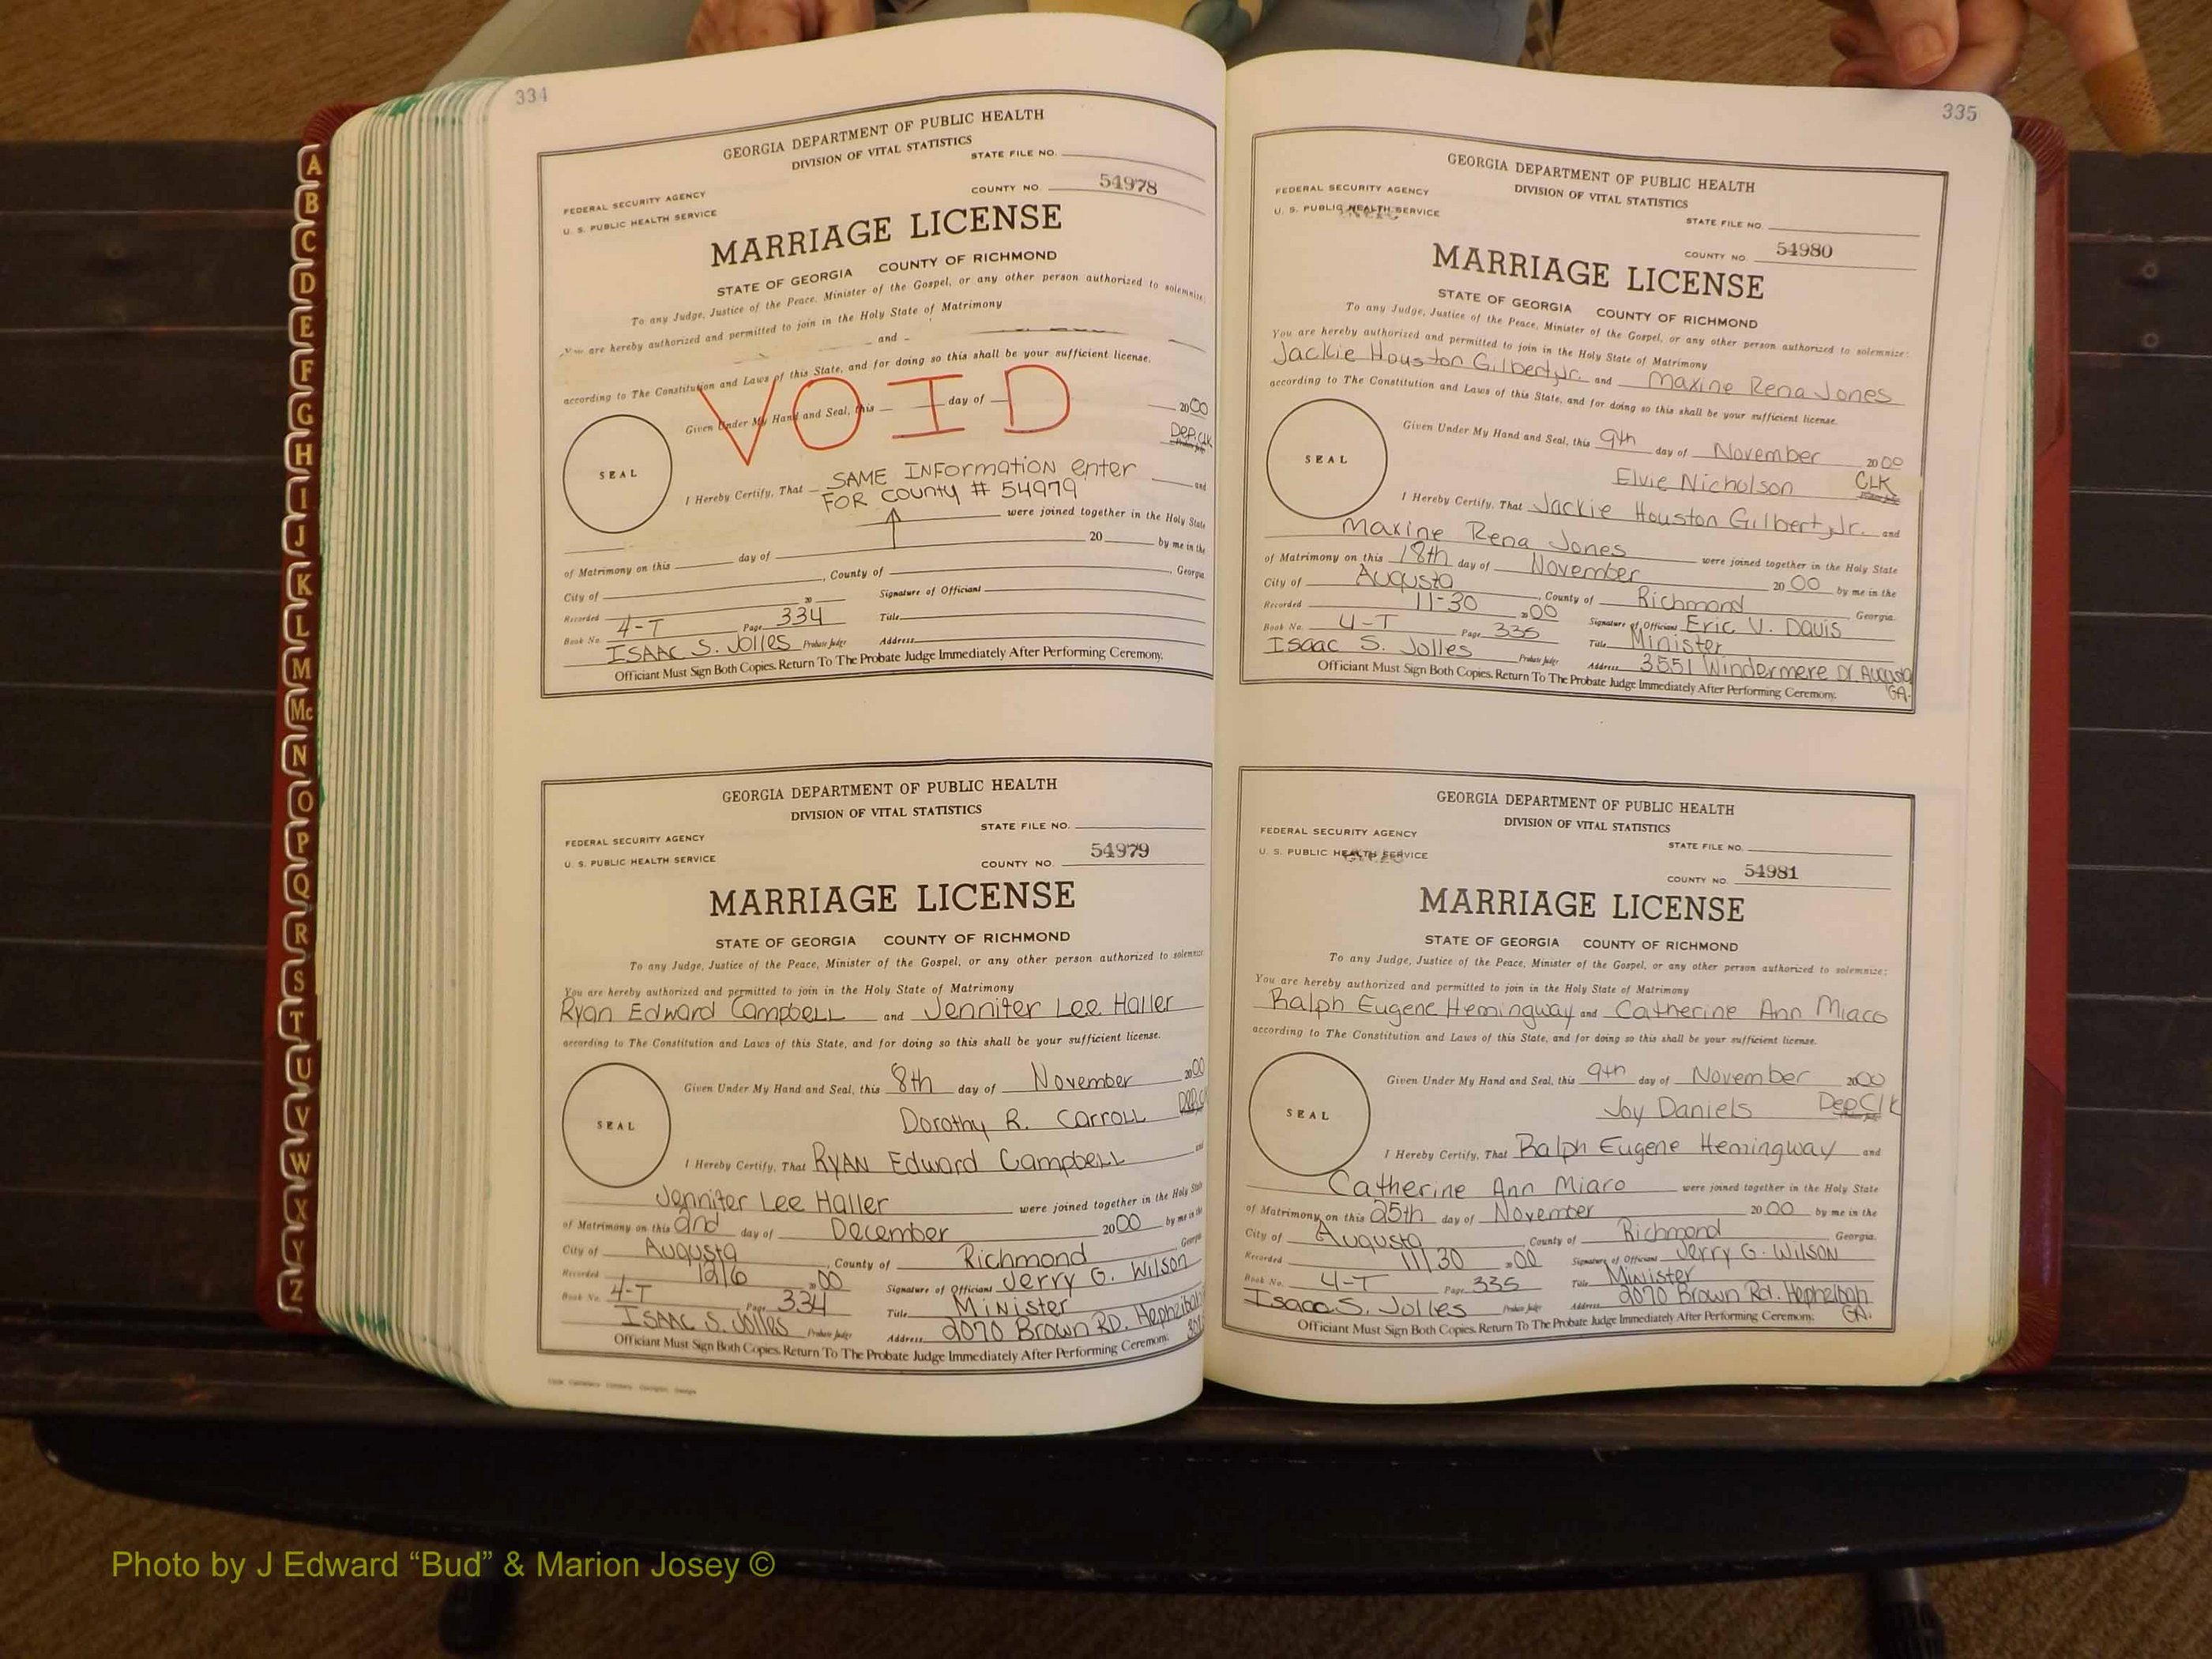 334
GEORGIA DEPARTMENT OF PUBLIC HEALTH
DIVISION OF VITAL STATISTICS
STATE FILE NO.
FEDERAL SECURITY AGENCY
U. S. PUBLIC HEALTH SERVICE
COUNTY NO. 54978
MARRIAGE LICENSE
STATE OF GEORGIA COUNTY OF RICHMOND
To any Judge, Justice of the Peace, Minister of the Gospel, or any other person authorized to solemnize:
You are hereby authorized and permitted to join in the Holy State of Matrimony
and
according to The Constitution and Laws of this State, and for doing so this shall be your sufficient license.
VOID
Given Under My Hand and Seal, this day of 2000
Dep.Clk
SEAL
I Hereby Certify, That SAME INFormation enter and
FOR county # 54979
were joined together in the Holy State
of Matrimony on this day of 20 by me in the
City of , County of , Georgia
Recorded 20 Signature of Officiant
Book No. 4-T Page 334 Title
ISAAC S. Jolles Probate Judge Address
Officiant Must Sign Both Copies. Return To The Probate Judge Immediately After Performing Ceremony.
GEORGIA DEPARTMENT OF PUBLIC HEALTH
DIVISION OF VITAL STATISTICS
STATE FILE NO.
FEDERAL SECURITY AGENCY
U. S. PUBLIC HEALTH SERVICE
COUNTY NO. 54979
MARRIAGE LICENSE
STATE OF GEORGIA COUNTY OF RICHMOND
To any Judge, Justice of the Peace, Minister of the Gospel, or any other person authorized to solemnize
You are hereby authorized and permitted to join in the Holy State of Matrimony
Ryan Edward CampbELL and Jennifer Lee Haller
according to The Constitution and Laws of this State, and for doing so this shall be your sufficient license.
Given Under My Hand and Seal, this 8th day of November 2000
Dorothy R. CarroLL
SEAL
I Hereby Certify, That RYAN Edward CampbELL and
Jennifer Lee Haller were joined together in the Holy State
of Matrimony on this 2nd day of December 2000 by me in the
City of Augusta , County of Richmond Georgia
Recorded 12/6 2000 Signature of Officiant Jerry G. Wilson
Book No. 4-T Page 334 Title Minister
ISAAC S. Jolles Probate Judge Address 2070 Brown RD. Hephzibah
Officiant Must Sign Both Copies. Return To The Probate Judge Immediately After Performing Ceremony.
335
GEORGIA DEPARTMENT OF PUBLIC HEALTH
DIVISION OF VITAL STATISTICS
FEDERAL SECURITY AGENCY
U. S. PUBLIC HEALTH SERVICE
STATE FILE NO.
COUNTY NO. 54980
MARRIAGE LICENSE
STATE OF GEORGIA COUNTY OF RICHMOND
To any Judge, Justice of the Peace, Minister of the Gospel, or any other person authorized to solemnize:
You are hereby authorized and permitted to join in the Holy State of Matrimony
Jackie Houston Gilbert,Jr. and Maxine Rena Jones
according to The Constitution and Laws of this State, and for doing so this shall be your sufficient license.
Given Under My Hand and Seal, this 9th day of November 2000
Elvie Nicholson CLK
SEAL
I Hereby Certify, That Jackie Houston Gilbert,Jr. and
Maxine Rena Jones were joined together in the Holy State
of Matrimony on this 18th day of November 2000 by me in the
City of Augusta , County of Richmond Georgia
Recorded 11-30 2000 Signature of Officiant Eric V. Davis
Book No. 4-T Page 335 Title Minister
Isaac S. Jolles Probate Judge Address 3551 Windermere Dr. Augusta
GA.
Officiant Must Sign Both Copies. Return To The Probate Judge Immediately After Performing Ceremony.
GEORGIA DEPARTMENT OF PUBLIC HEALTH
DIVISION OF VITAL STATISTICS
FEDERAL SECURITY AGENCY
U. S. PUBLIC HEALTH SERVICE
STATE FILE NO.
COUNTY NO. 54981
MARRIAGE LICENSE
STATE OF GEORGIA COUNTY OF RICHMOND
To any Judge, Justice of the Peace, Minister of the Gospel, or any other person authorized to solemnize:
You are hereby authorized and permitted to join in the Holy State of Matrimony
Ralph Eugene Hemingway and Catherine Ann Miaco
according to The Constitution and Laws of this State, and for doing so this shall be your sufficient license.
Given Under My Hand and Seal, this 9th day of November 2000
Joy Daniels Dep Clk
SEAL
I Hereby Certify, That Ralph Eugene Hemingway and
Catherine Ann Miaco were joined together in the Holy State
of Matrimony on this 25th day of November 2000 by me in the
City of Augusta , County of Richmond Georgia.
Recorded 11/30 2000 Signature of Officiant Jerry G. WILSON
Book No. 4-T Page 335 Title Minister
Isaac S. Jolles Probate Judge Address 2070 Brown Rd. Hephzibah
GA.
Officiant Must Sign Both Copies. Return To The Probate Judge Immediately After Performing Ceremony.
A
B
C
D
E
F
G
H
I
J
K
L
M
Mc
N
O
P
Q
R
S
T
U
V
W
X
Y
Z
Photo by J Edward “Bud” & Marion Josey ©